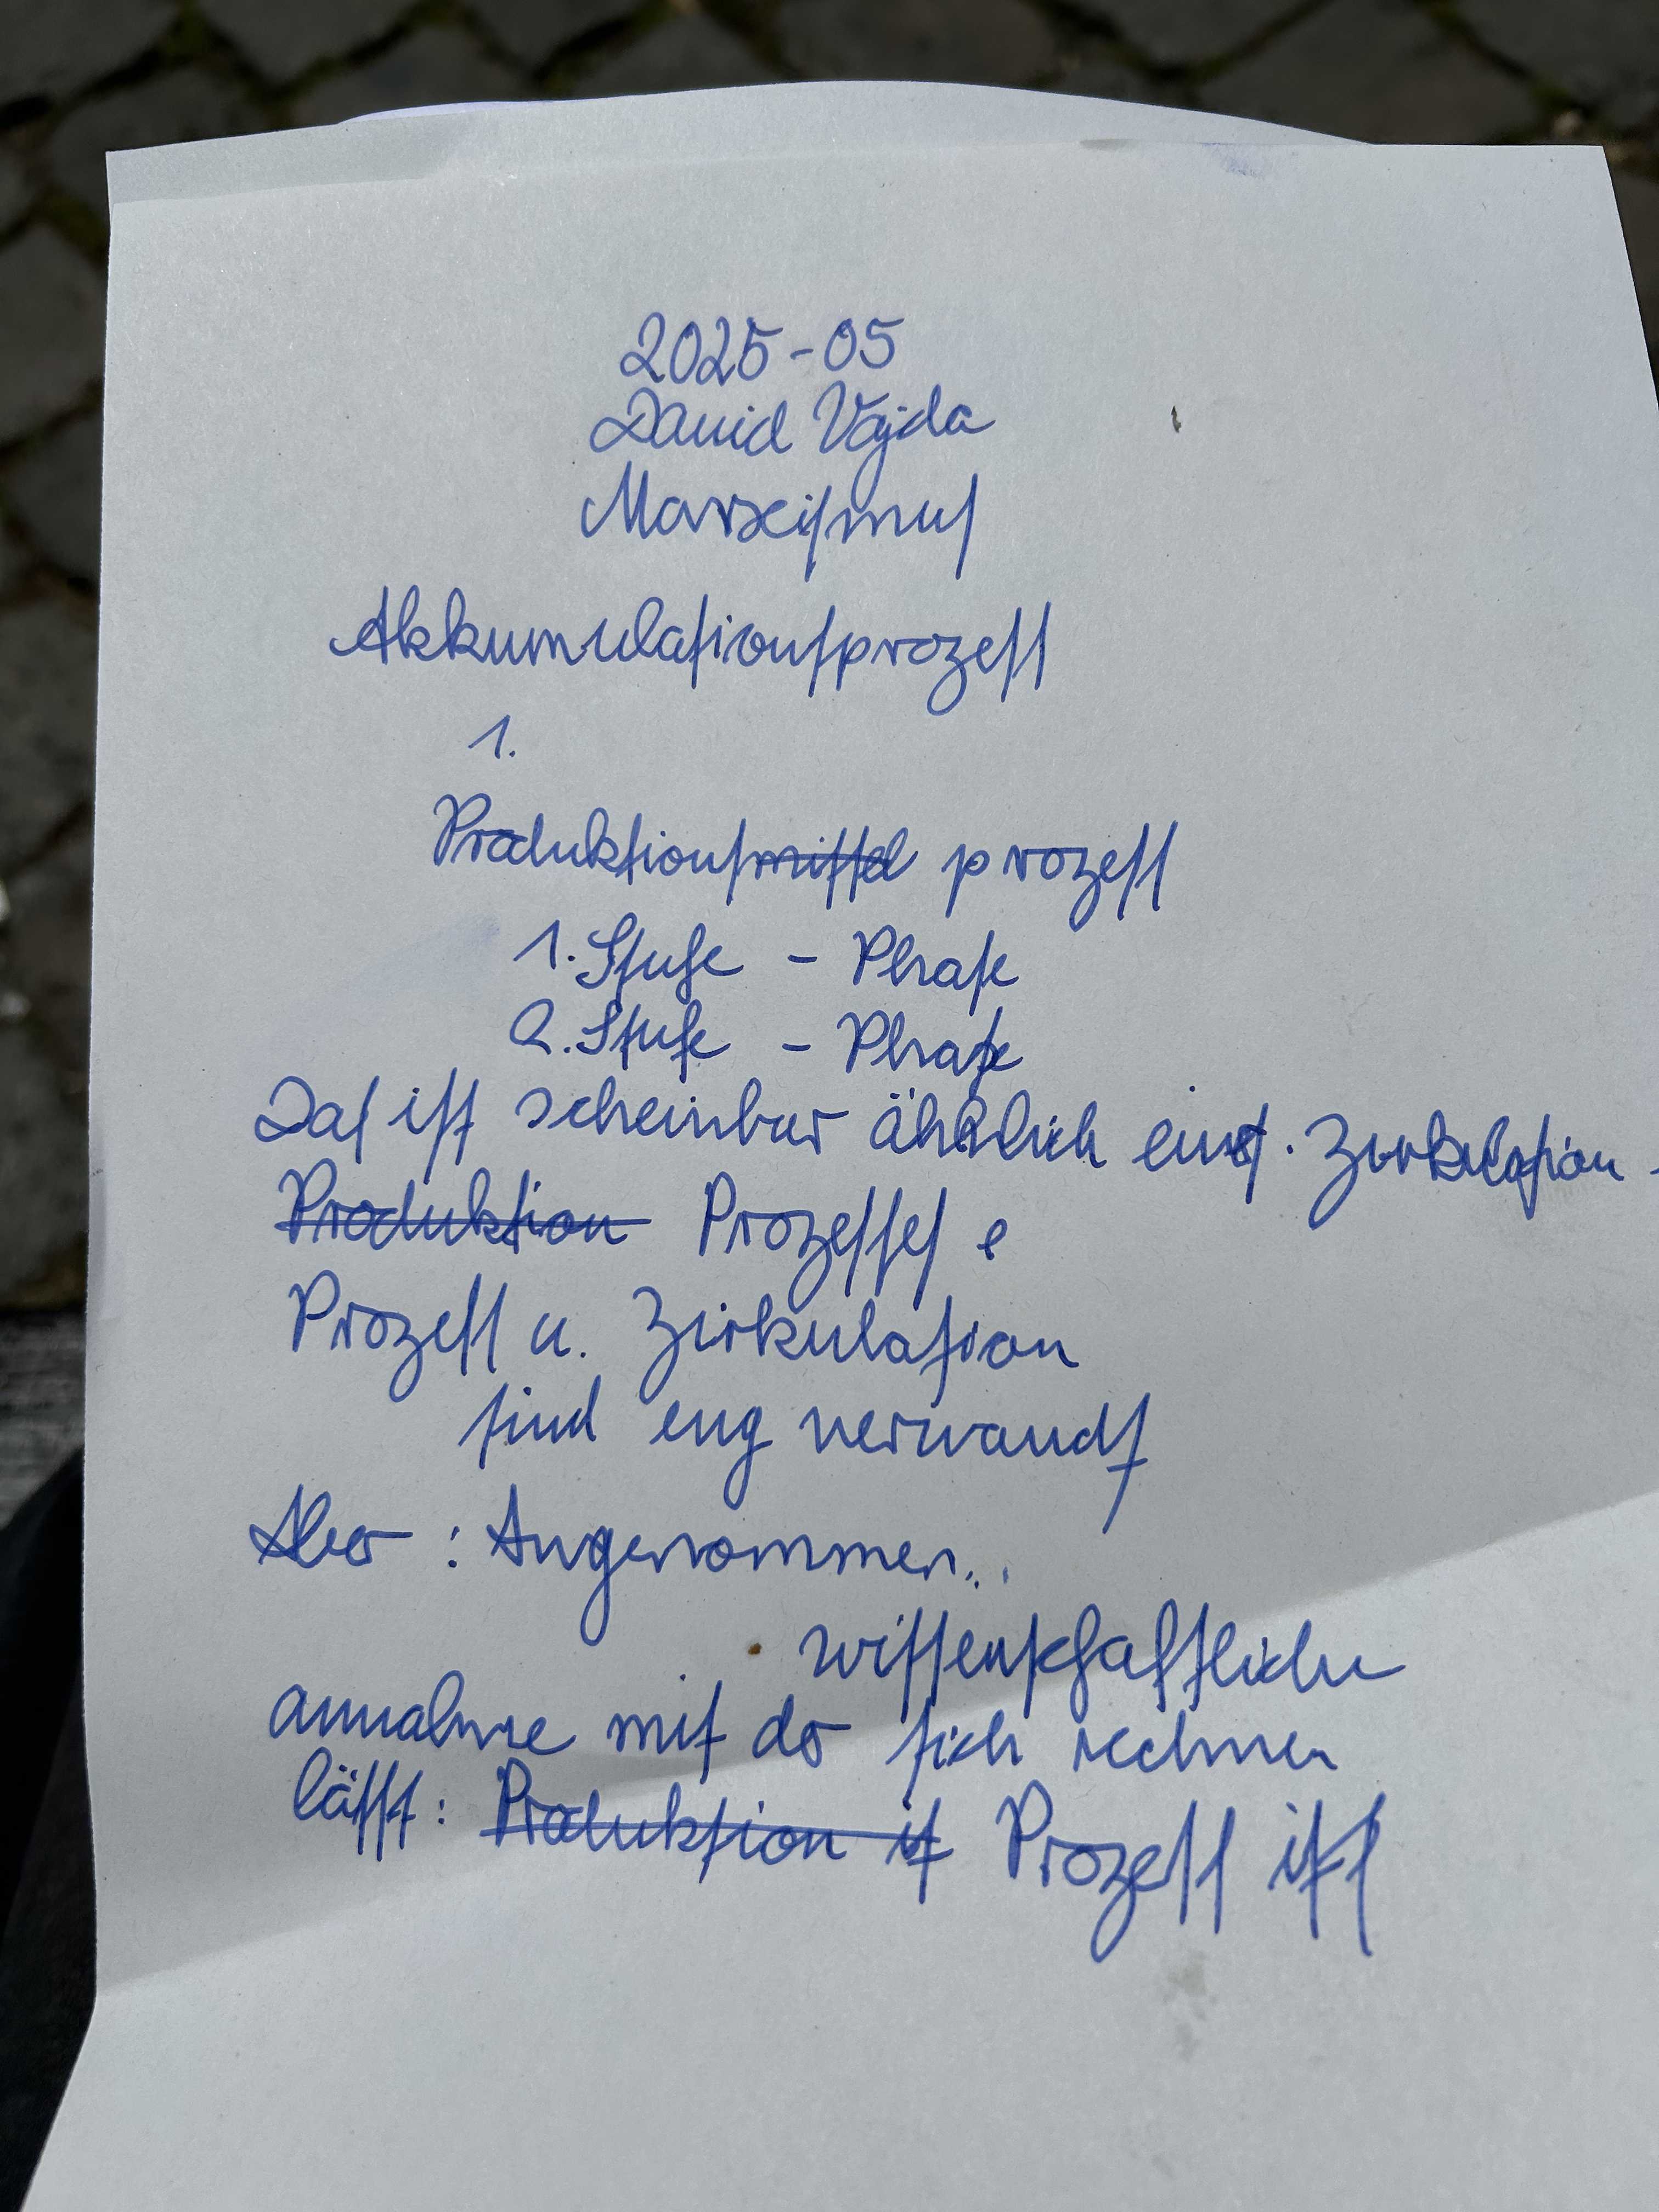 2025-05
David Vajda
Marxiſmuſ
Akkumulationſprozeſſ
1.
Produktionſmittel prozeſſ
1. Stufe - Phaſe
2. Stufe - Phaſe
Daſ iſt scheinbar ähnlich eineſ. Zirkulation -
Produktion Prozeſſeſ e
Prozeſſ u. Zirkulation
ſind eng verwandt
Aber : Angenommen..
wiſſenſchaftliche
annahme mit der ſich rechnen
läſſt : Produktion iſt Prozeſſ iſt